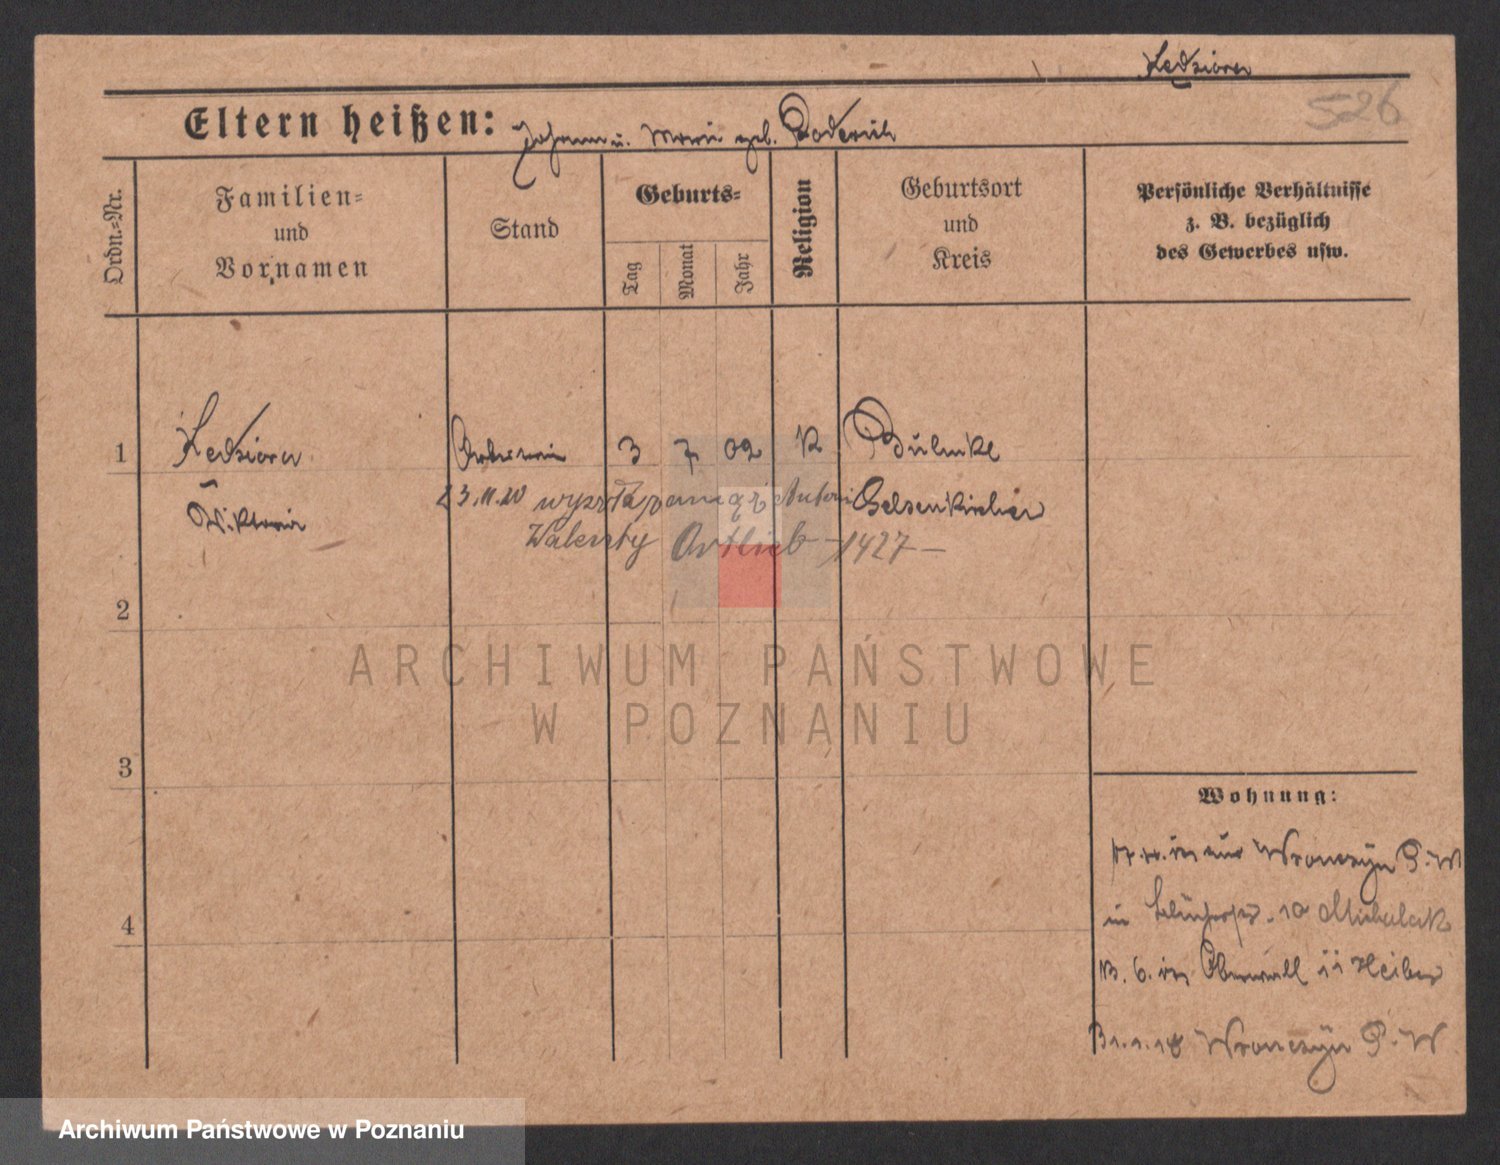 Kedziora
526
Eltern heißen: Johann u. Marie geb.
Ordn.=Nr.
Familien=
und
Vornamen
Stand
Geburts=
Tag
Monat
Jahr
Religion
Geburtsort
und
Kreis
Persönliche Verhältnisse
z. B. bezüglich
des Gewerbes usw.
1
Kedziora
Arbeiterin
3
7.
02
K
Bulmke
23.11.20
Antoni
Gelsenkirchen
Wiktoria
Walenty Ortlieb – 1427 –
2
3
4
Wohnung:
Wronczyn P. W
in 10 Michalak
6. Oberwall 11
31.1.18 Wronczyn P. W
ARCHIWUM PAŃSTWOWE
W POZNANIU
Archiwum Państwowe w Poznaniu